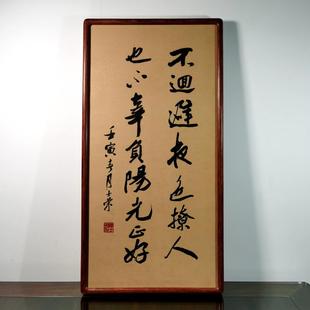 不迴避夜色撩人
也不辜負陽光正好
壬寅年月士荣